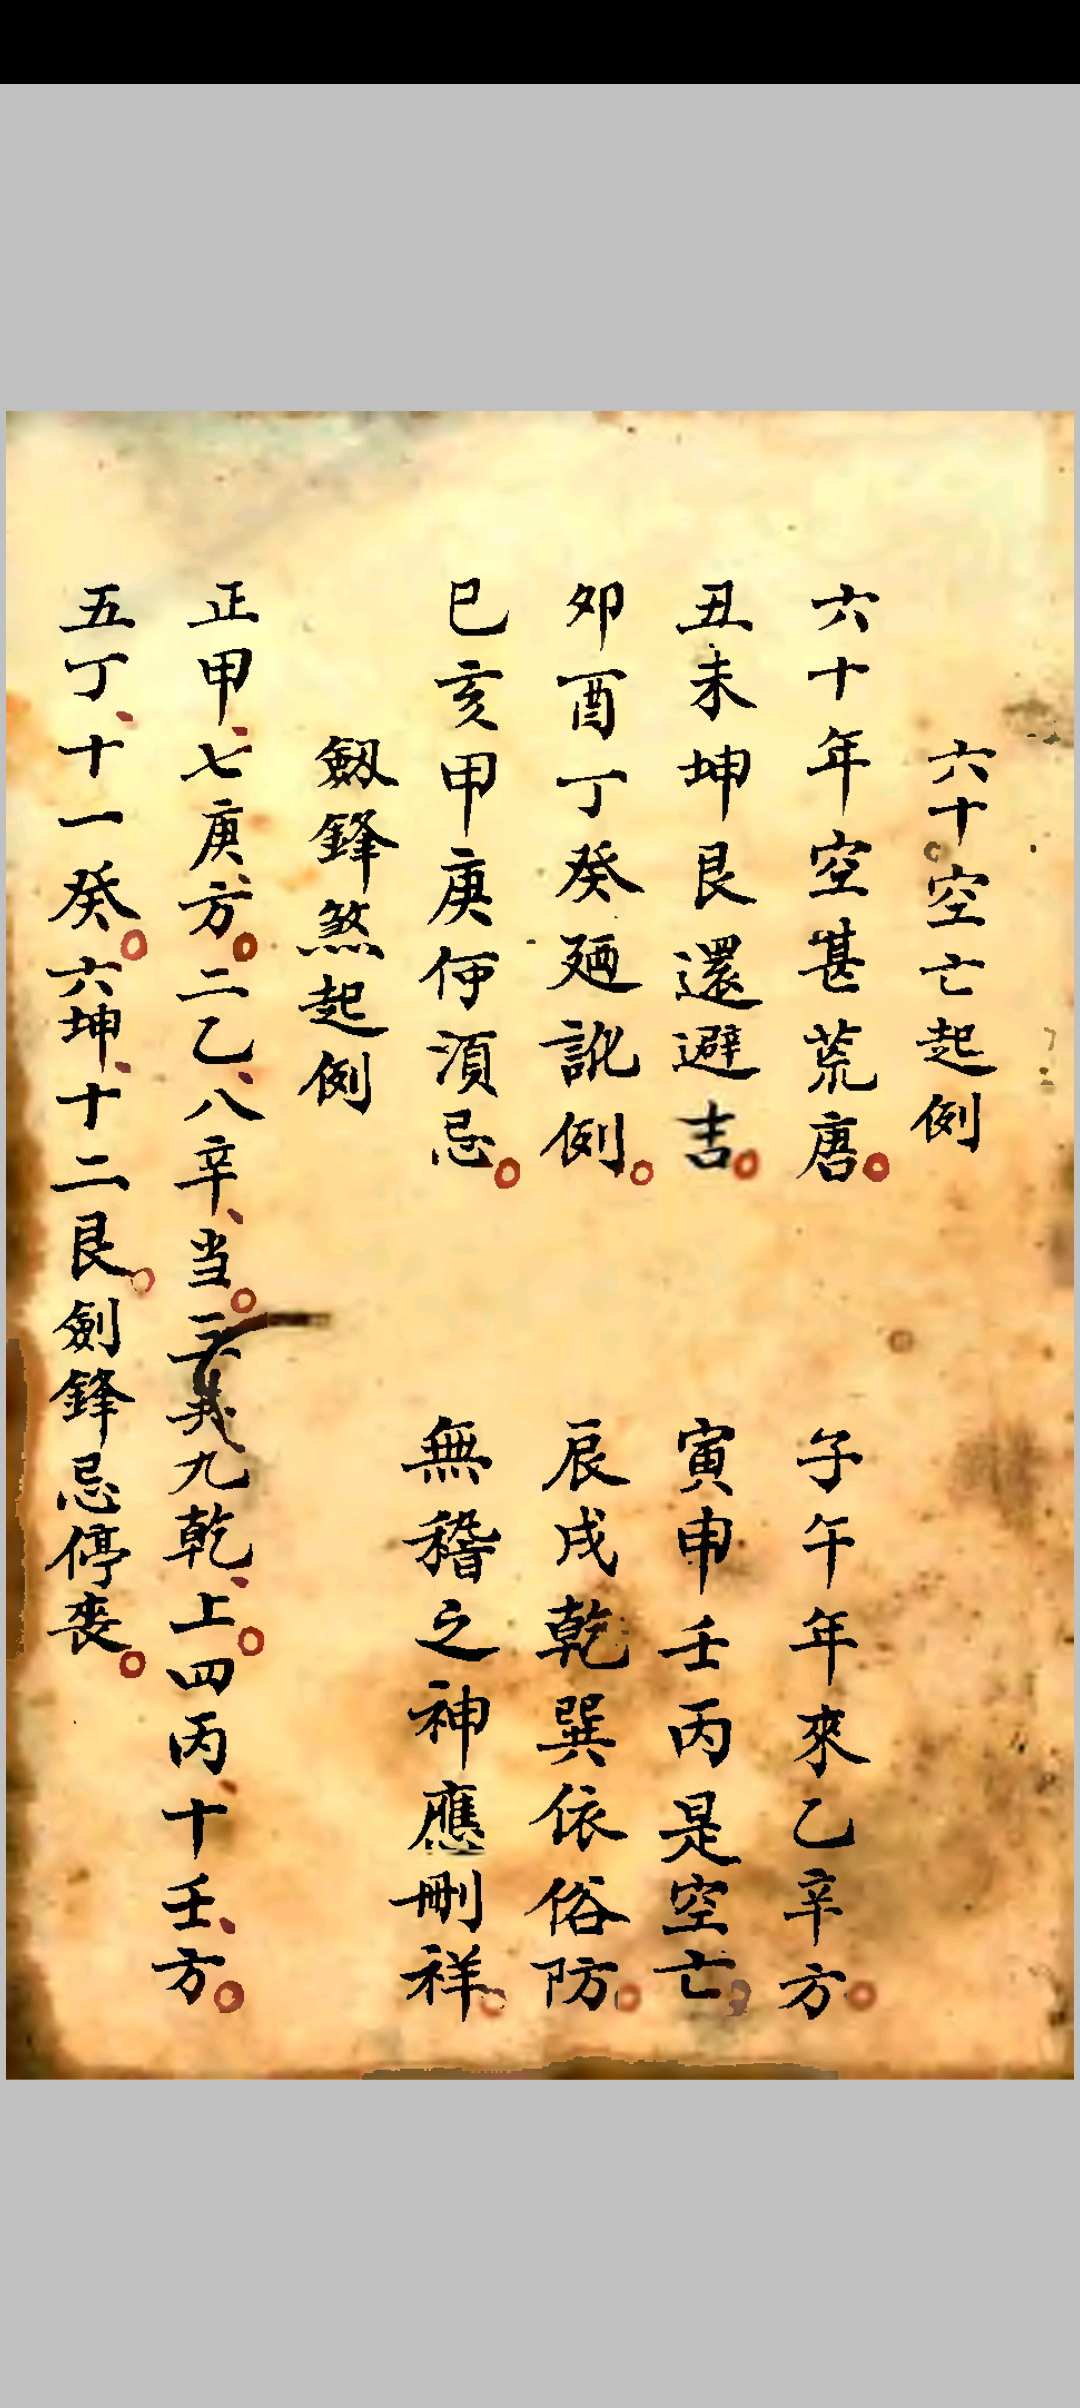 六十空亡起例
六十年空甚荒唐。子午年來乙辛方。
丑未坤艮還避吉。寅申壬丙是空亡。
夘酉丁癸廼訛例。辰戌乾巽依俗防。
巳亥甲庚何須忌。無稽之神應刪祥。
劔鋒煞起例
正甲、七庚方。二乙、八辛、当。三 九乾、上。四丙、十壬、方。
五丁、十一癸。六坤、十二艮。劍鋒忌停喪。